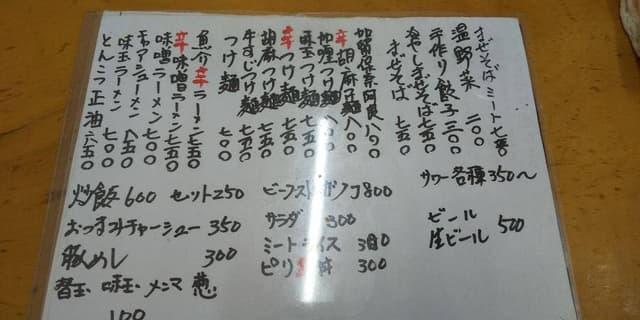 まぜそば ミート 七五〇
温野菜 二〇〇
手作り餃子 三〇〇
冷やしまぜそば 七五〇
まぜそば 七五〇
加賀保奈阿良 八〇〇
辛胡麻子麺 八〇〇
咖喱つけ麺 八〇〇
味玉つけ麺 七五〇
辛つけ麺 七五〇
胡麻つけ麺 七五〇
牛すじつけ麺
つけ麺 七〇〇
魚介辛ラーメン 七五〇
辛味噌ラーメン 七五〇
味噌ラーメン 七〇〇
チャアシューメン
味玉ラーメン 七〇〇
とんこつ正油 六五〇
炒飯 600 セット250
おつまみチャーシュー 350
豚めし 300
替玉、味玉、メンマ 葱
100
ビーフストロガノフ 800
サラダ 300
ミートライス
ピリ辛丼 300
サワー各種 350〜
ビール
生ビール 500